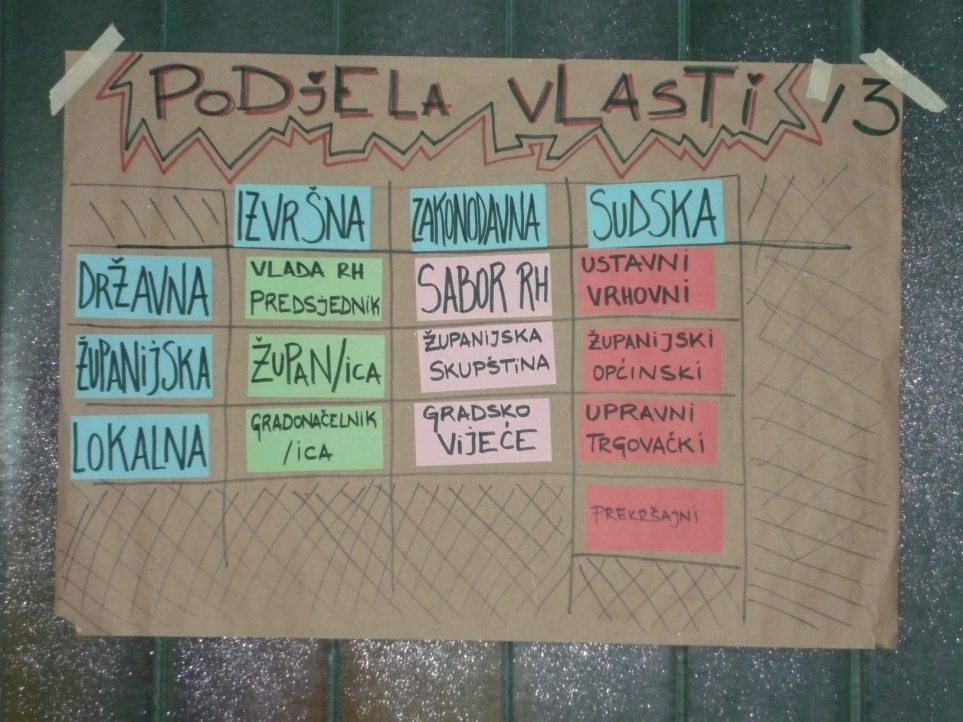 PODJELA VLASTI /3
IZVRŠNA ZAKONODAVNA SUDSKA
DRŽAVNA
VLADA RH
PREDSJEDNIK
SABOR RH
USTAVNI
VRHOVNI
ŽUPANIJSKA
ŽUPAN/ICA
ŽUPANIJSKA
SKUPŠTINA
ŽUPANIJSKI
OPĆINSKI
LOKALNA
GRADONAČELNIK
/ICA
GRADSKO
VIJEĆE
UPRAVNI
TRGOVAČKI
PREKRŠAJNI